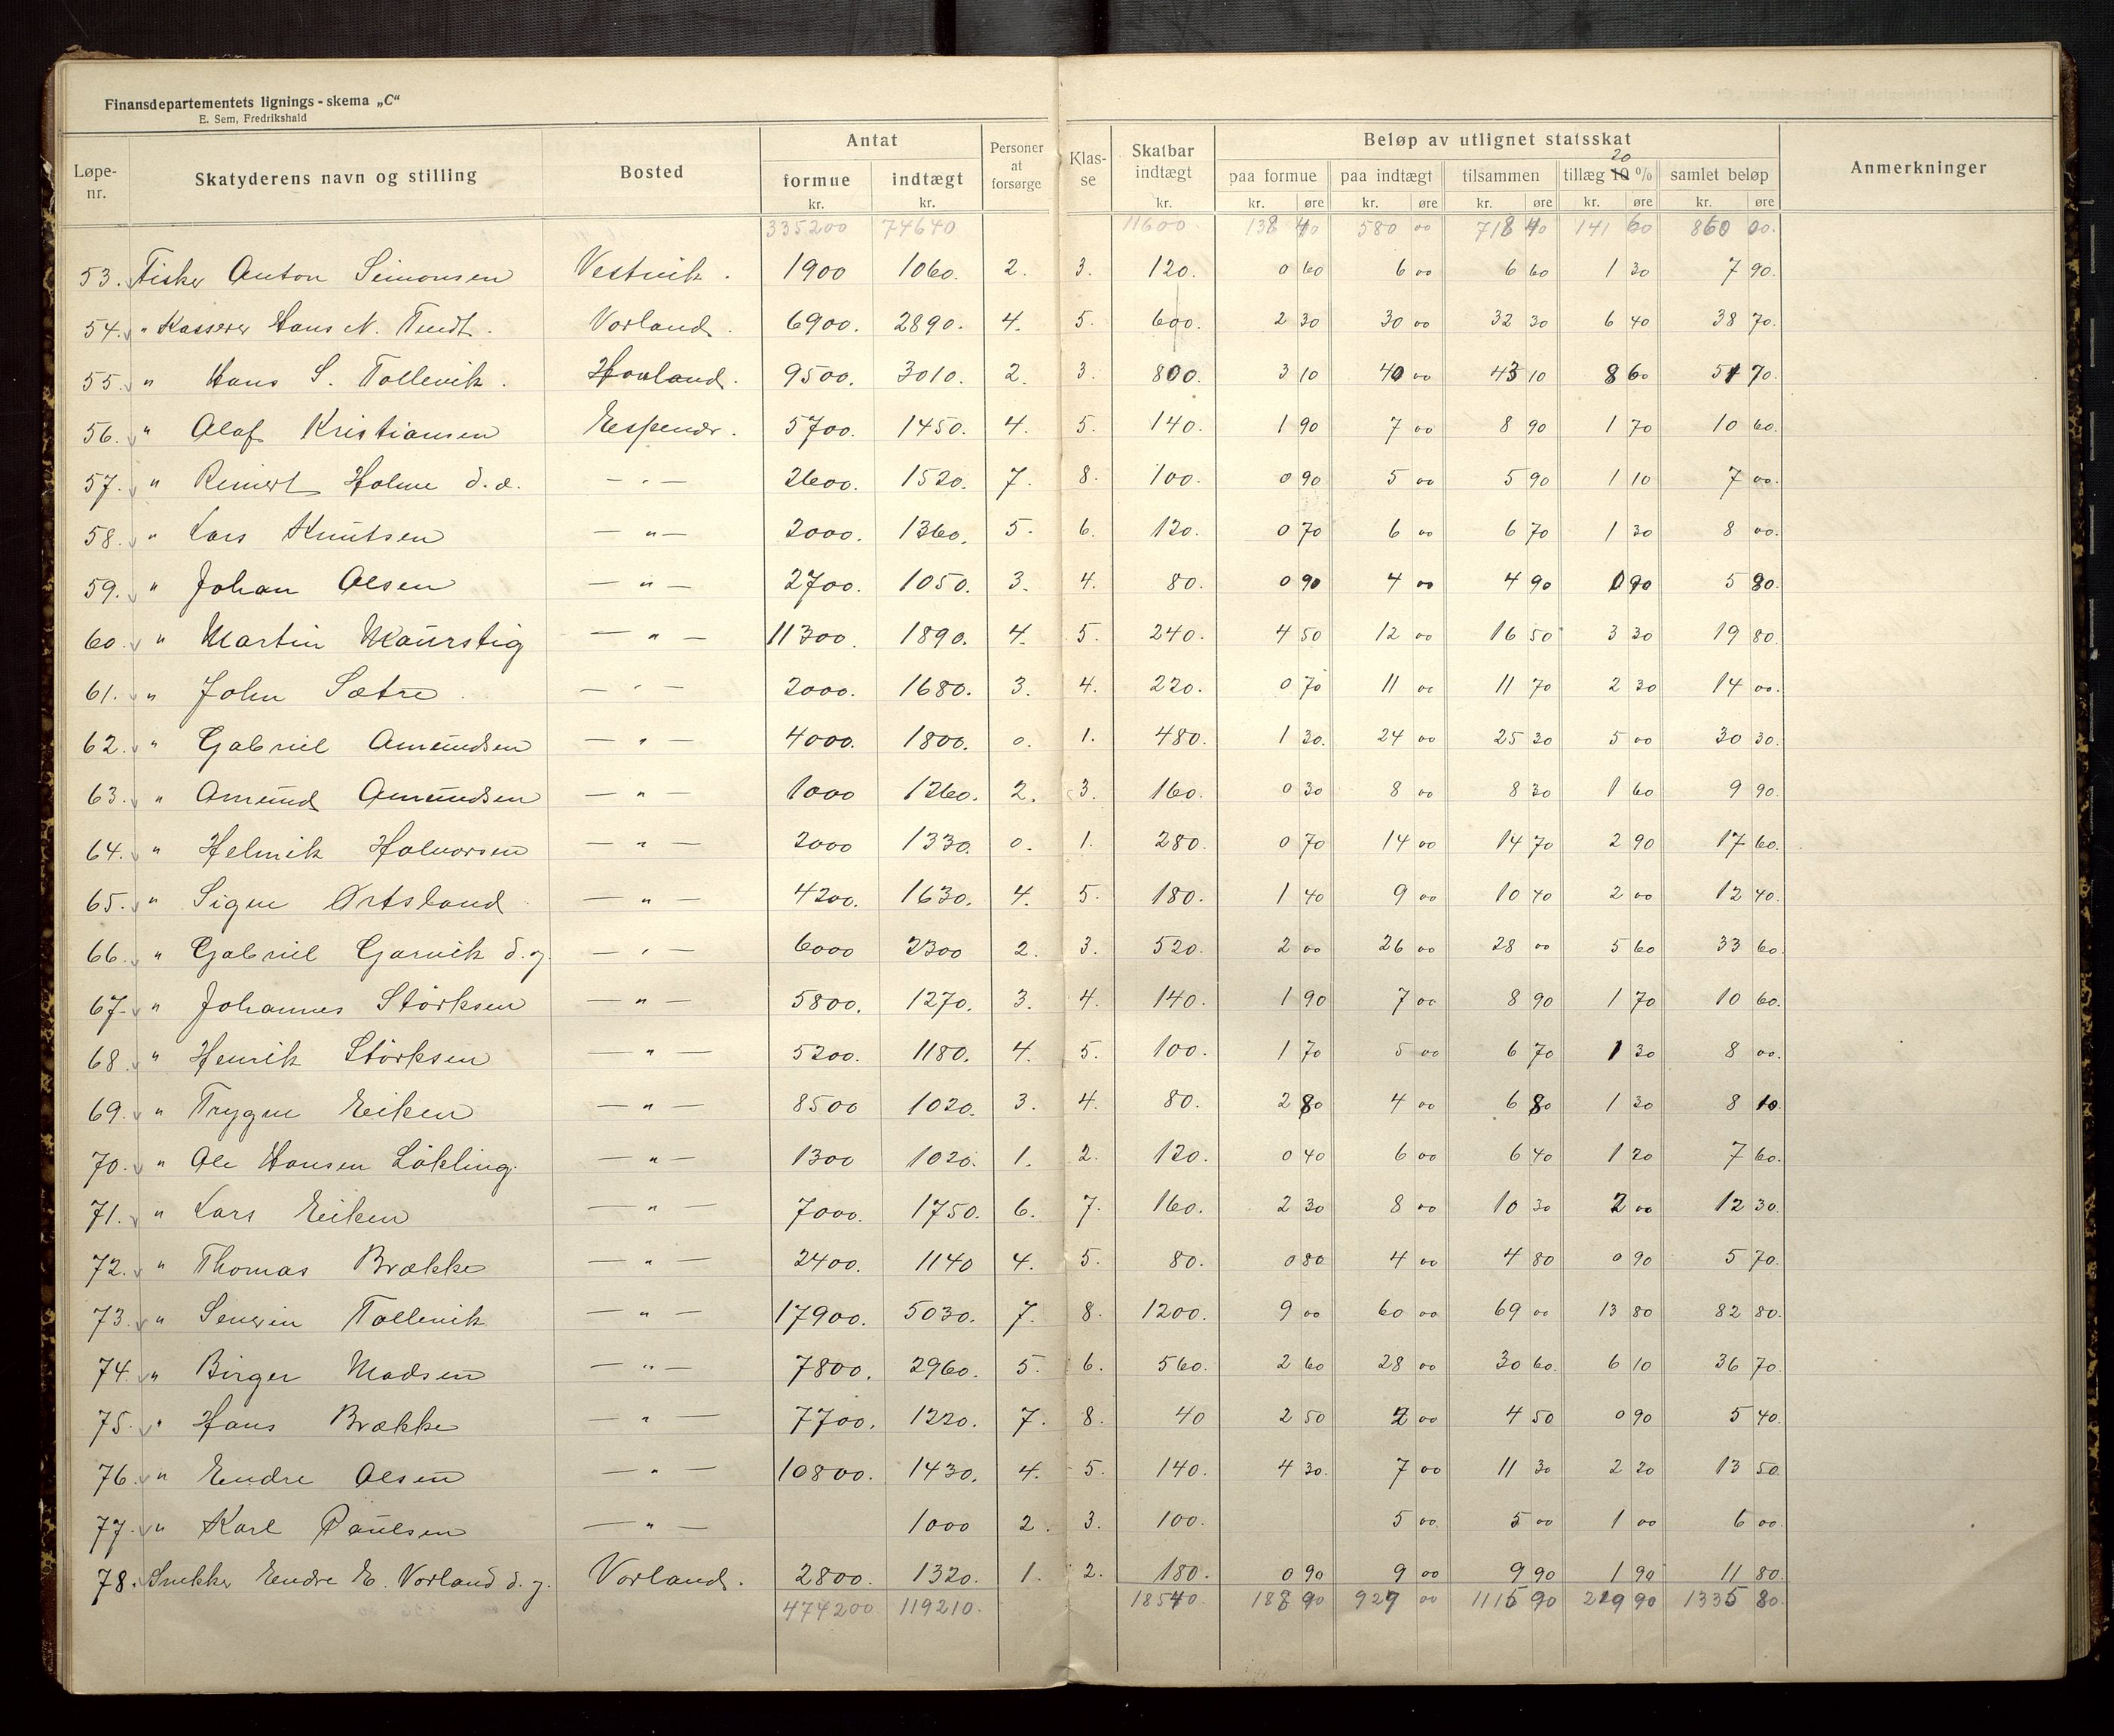 Finansdepartementets lignings-skema „C“
E. Sem, Fredrikshald
Løpe-nr. Skatyderens navn og stilling Bosted Antat formue kr. Antat indtægt kr. Personer at forsørge Klas-se Skatbar indtægt kr. Beløp av utlignet statsskat paa formue kr. øre paa indtægt kr. øre tilsammen kr. øre tillæg 20 10 % kr. øre samlet beløp kr. øre Anmerkninger
335200 74640 11600 138 40 580 00 718 40 141 60 860 00.
53. Fisker Anton Simonsen Vestvik. 1900 1060. 2. 3. 120. 0 60 6 00 6 60 1 30 7 90.
54. " Kasserer Hans N. Tendt. Vorland. 6900. 2890. 4. 5. 600. 2 30 30 00 32 30 6 40 38 70.
55. " Hans S. Tollevik. Hovland. 9500. 3010. 2. 3. 800. 3 10 40 00 43 10 8 60 51 70.
56. " Olaf Kristiansen Espendr. 5700. 1450. 4. 5. 140. 1 90 7 00 8 90 1 70 10 60.
57. " Reinert Holme d.æ. — " — 2600. 1520. 7. 8. 100. 0 90 5 00 5 90 1 10 7 00.
58. " Lars Knutsen — " — 2000. 1360. 5. 6. 120. 0 70 6 00 6 70 1 30 8 00.
59. " Johan Olsen — " — 2700. 1050. 3. 4. 80. 0 90 4 00 4 90 0 90 5 80.
60. " Martin Maurstig — " — 11300. 1890. 4. 5. 240. 4 50 12 00 16 50 3 30 19 80.
61. " John Sætre — " — 2000. 1680. 3. 4. 220. 0 70 11 00 11 70 2 30 14 00.
62. " Gabriel Amundsen — " — 4000. 1800. 0. 1. 480. 1 30. 24 00 25 30 5 00 30 30.
63. " Amund Amundsen — " — 1000 1260. 2. 3. 160. 0 30 8 00 8 30 1 60 9 90.
64. " Helmik Halvorsen — " — 2000 1330. 0. 1. 280. 0 70 14 00 14 70 2 90 17 60.
65. " Signe Ortsland — " — 4200. 1630. 4. 5. 180. 1 40 9 00 10 40 2 00 12 40.
66. " Gabriel Garvik d.y. — " — 6000 2300 2. 3. 520. 2 00 26 00 28 00 5 60 33 60.
67. " Johannes Störksen — " — 5800. 1270. 3. 4. 140. 1 90 7 00 8 90 1 70 10 60.
68. " Henrik Störksen — " — 5200. 1180. 4. 5. 100. 1 70 5 00 6 70 1 30 8 00.
69. " Trygve Eiken — " — 8500 1020. 3. 4. 80. 2 80 4 00 6 80 1 30 8 10.
70. " Ole Hansen Lökling. — " — 1300 1020. 1. 2. 120. 0 40 6 00 6 40 1 20 7 60.
71. " Lars Eiken — " — 7000. 1750. 6. 7. 160. 2 30 8 00 10 30 2 00 12 30.
72. " Thomas Brække — " — 2400. 1140 4. 5. 80. 0 80 4 00 4 80 0 90 5 70.
73. " Severin Tollevik — " — 17900. 5030. 7. 8. 1200. 9 00 60 00 69 00 13 80 82 80.
74. " Birger Madsen — " — 7800. 2960. 5. 6. 560. 2 60 28 00 30 60. 6 10 36 70.
75. " Hans Brække — " — 7700. 1220. 7. 8. 40 2 50 2 00 4 50 0 90 5 40.
76. " Endre Olsen — " — 10800. 1430. 4. 5. 140. 4 30. 7 00 11 30 2 20 13 50.
77. " Karl Paulsen — " — 1000 2. 3. 100. 5 00. 5 00 1 00 6 00.
78. Snekker Endre E. Vorland d.y. Vorland. 2800. 1320. 1. 2. 180. 0 90 9 00 9 90 1 90 11 80.
474200 119210. 18540. 188 90 927 00 1115 90 219 90 1335 80.